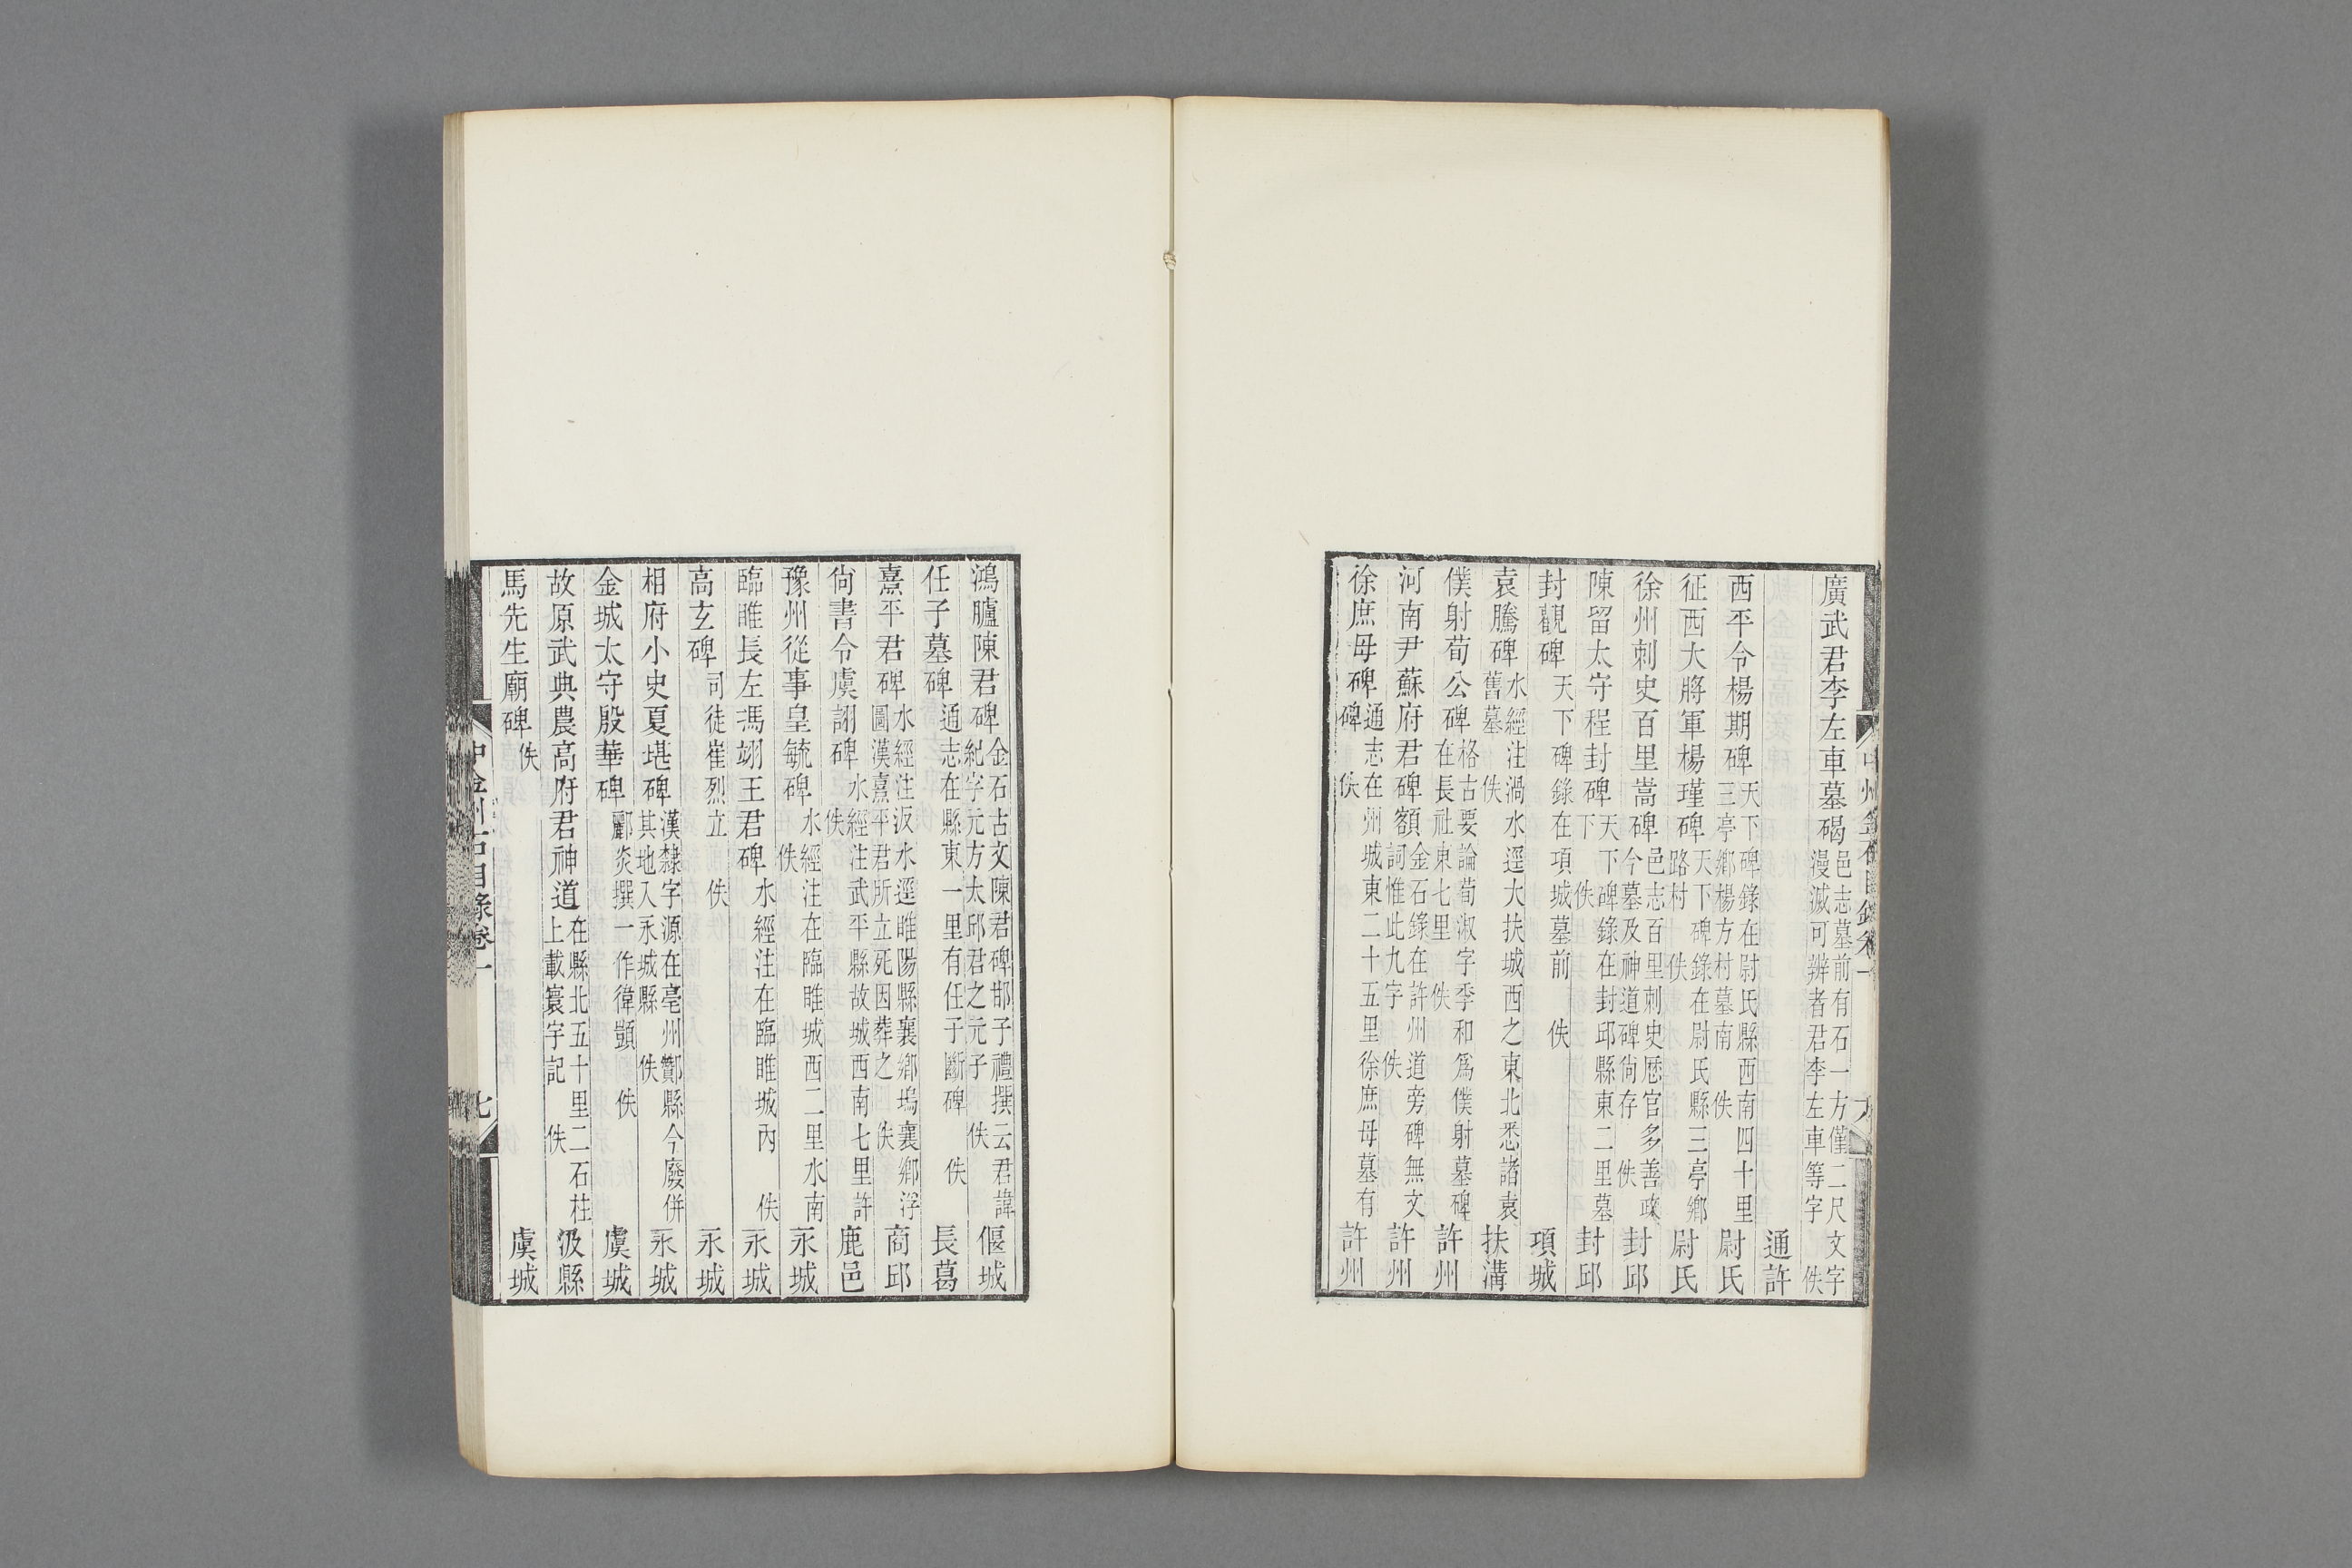 廣武君李左車墓碣 邑志墓前有石一方僅二尺文字漫滅可辨者君李左車等字 佚
通許
西平令楊期碑 天下碑錄在尉氏縣西南四十里三亭鄉楊方村墓南 佚 尉氏
征西大將軍楊瑾碑 天下碑錄在尉氏縣三亭鄉路村 佚 尉氏
徐州刺史百里嵩碑 邑志百里刺史歷官多善政今墓及神道碑尙存 佚 封邱
陳留太守程封碑 天下碑錄在封邱縣東二里墓下 佚 封邱
封觀碑 天下碑錄在項城墓前 佚 項城
袁騰碑 水經注渦水逕大扶城西之東北悉諸袁舊墓 佚 扶溝
僕射荀公碑 格古要論荀淑字季和爲僕射墓碑在長社東七里 佚 許州
河南尹蘇府君碑額 金石錄在許州道旁碑無文詞惟此九字 佚 許州
徐庶母碑 通志在州城東二十五里徐庶母墓有碑 佚 許州
鴻臚陳君碑 金石古文陳君碑邯子禮撰云君諱紀字元方太邱君之元子 佚 偃城
任子墓碑 通志在縣東一里有任子斷碑 佚 長葛
熹平君碑 水經注汳水逕睢陽縣襄鄉塢襄鄉浮圖漢熹平君所立死因葬之 佚 商邱
尙書令虞詡碑 水經注武平縣故城西南七里許 佚 鹿邑
豫州從事皇毓碑 水經注在臨睢城西二里水南 佚 永城
臨睢長左馮翊王君碑 水經注在臨睢城內 佚 永城
高玄碑 司徒崔烈立 佚 永城
相府小史夏堪碑 漢隸字源在亳州酇縣今廢併其地入永城縣 佚 永城
金城太守殷華碑 酈炎撰一作衛顗 佚 虞城
故原武典農高府君神道 在縣北五十里二石柱上載寰宇記 佚 汲縣
馬先生廟碑 佚 虞城